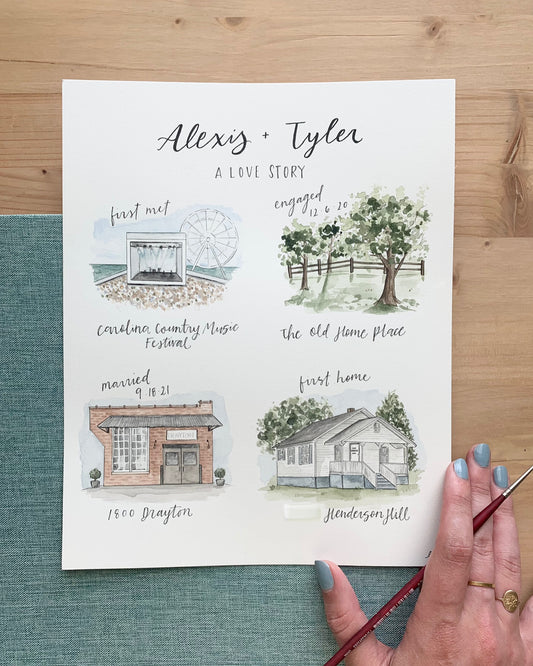 Alexis + Tyler
A LOVE STORY
first met
Carolina Country Music
Festival
engaged
12.6.20
The Old Home Place
married
9.18.21
1800 Drayton
first home
Henderson Hill